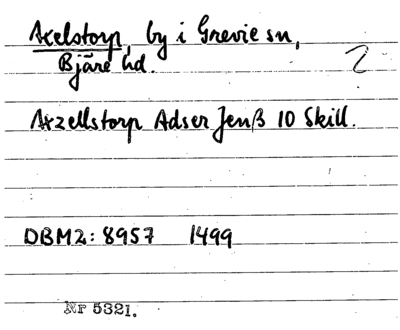 Axelstorp, by i Grevie sn,
Bjäre hd.
2
Axzellstorp Adser Jenß 10 Skill.
DBM2: 8957 1499
Nr 5321.